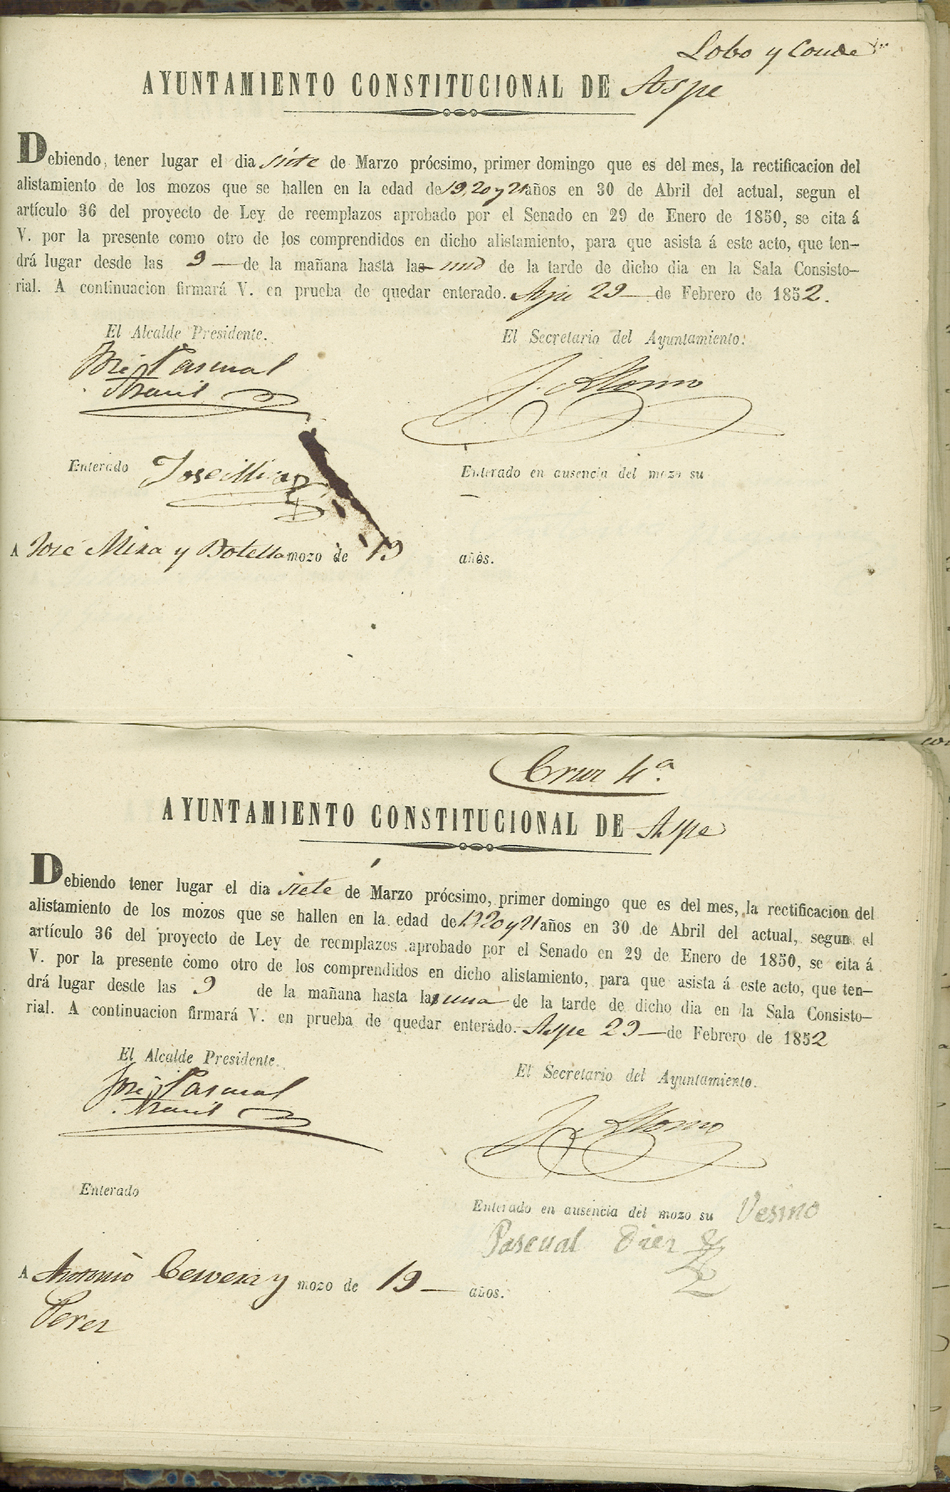 Lobo y Conde
AYUNTAMIENTO CONSTITUCIONAL DE Aspe
Debiendo tener lugar el dia siete de Marzo prócsimo, primer domingo que es del mes, la rectificacion del
alistamiento de los mozos que se hallen en la edad de 19, 20 y 21 años en 30 de Abril del actual, segun el
artículo 36 del proyecto de Ley de reemplazos aprobado por el Senado en 29 de Enero de 1850, se cita á
V. por la presente como otro de los comprendidos en dicho alistamiento, para que asista á este acto, que ten-
drá lugar desde las 9 de la mañana hasta las una de la tarde de dicho dia en la Sala Consisto-
rial. A continuacion firmará V. en prueba de quedar enterado. Aspe 29 de Febrero de 1852.
El Alcalde Presidente. El Secretario del Ayuntamiento:
José Pascual J. Alonso
Enterado Jose Mira Enterado en ausencia del mozo su
A José Mira y Botella mozo de 19 años.
Cruz 4ª.
AYUNTAMIENTO CONSTITUCIONAL DE Aspe
Debiendo tener lugar el dia siete de Marzo prócsimo, primer domingo que es del mes, la rectificacion del
alistamiento de los mozos que se hallen en la edad de 19 20 y 21 años en 30 de Abril del actual, segun el
artículo 36 del proyecto de Ley de reemplazos aprobado por el Senado en 29 de Enero de 1850, se cita á
V. por la presente como otro de los comprendidos en dicho alistamiento, para que asista á este acto, que ten-
drá lugar desde las 9 de la mañana hasta la una de la tarde de dicho dia en la Sala Consisto-
rial. A continuacion firmará V. en prueba de quedar enterado. Aspe 29 de Febrero de 1852
El Alcalde Presidente. El Secretario del Ayuntamiento.
José Pascual J. Alonso
Enterado Enterado en ausencia del mozo su Vesino
Pascual Diez
A Antonio Cervera y mozo de 19 años.
Perez